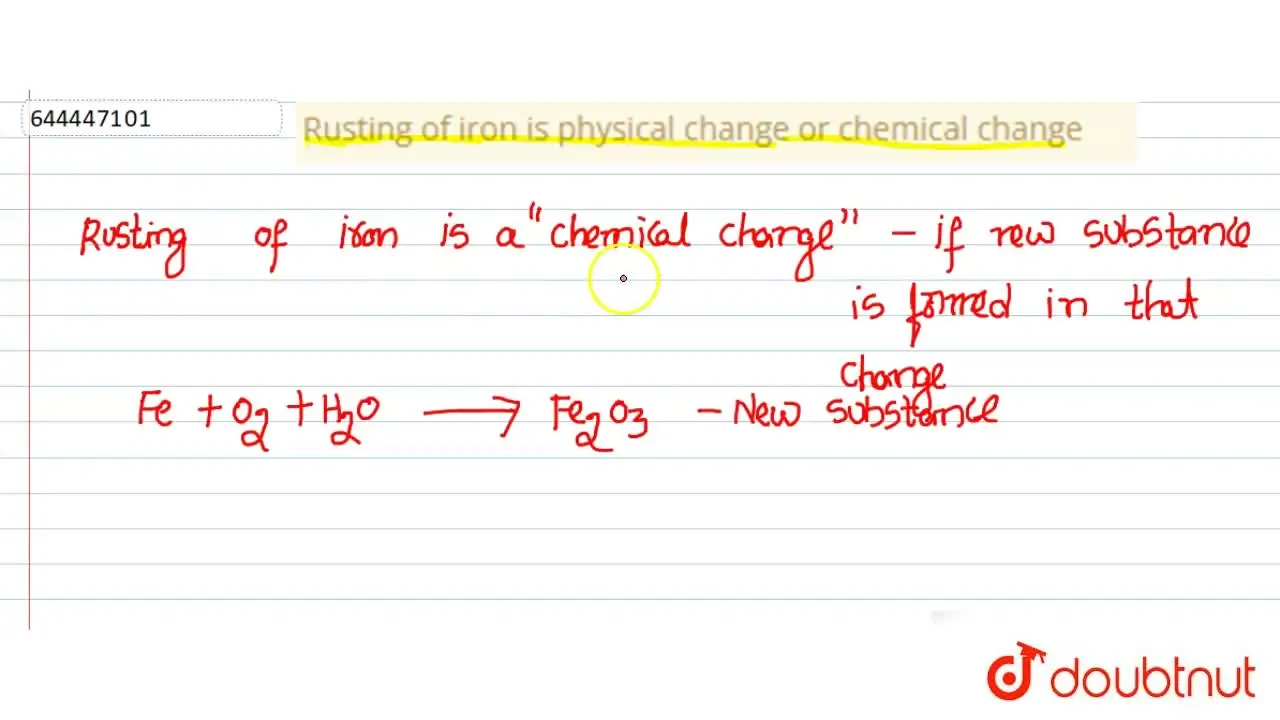 644447101
Rusting of iron is physical change or chemical change
Rusting of iron is a "chemical change" - if new substance
is formed in that
change
Fe + O2 + H2O ⟶ Fe2O3 - New substance
doubtnut